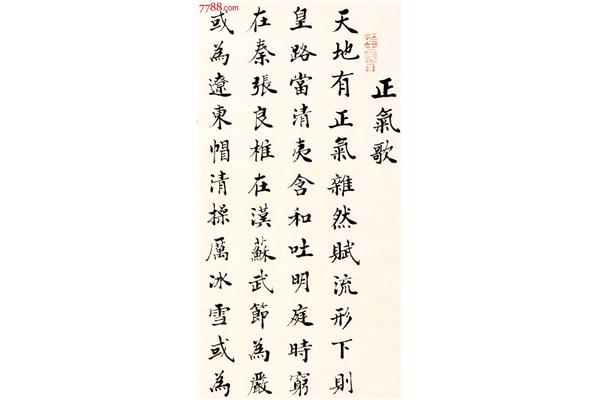 7788.com
正氣歌
天地有正氣雜然賦流形下則
皇路當清夷含和吐明庭時窮
在秦張良椎在漢蘇武節為嚴
或為遼東帽清操厲冰雪或為